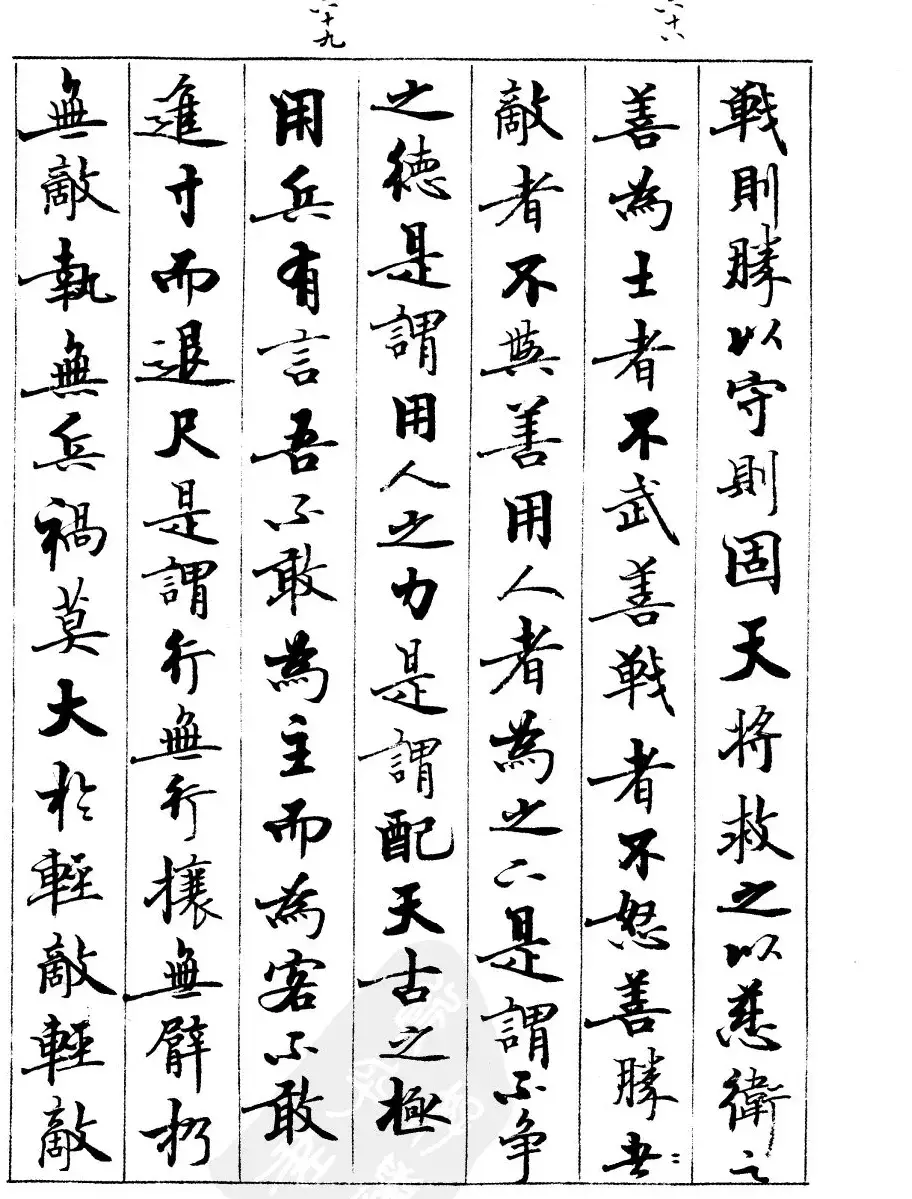 十八
戰則勝以守則固天將救之以慈衛之
善為士者不武善戰者不怒善勝
敵者不與善用人者為之下是謂不争
之徳是謂用人之力是謂配天古之極
十九
用兵有言吾不敢為主而為客不敢
進寸而退尺是謂行無行攘無臂扔
無敵執無兵禍莫大於輕敵輕敵